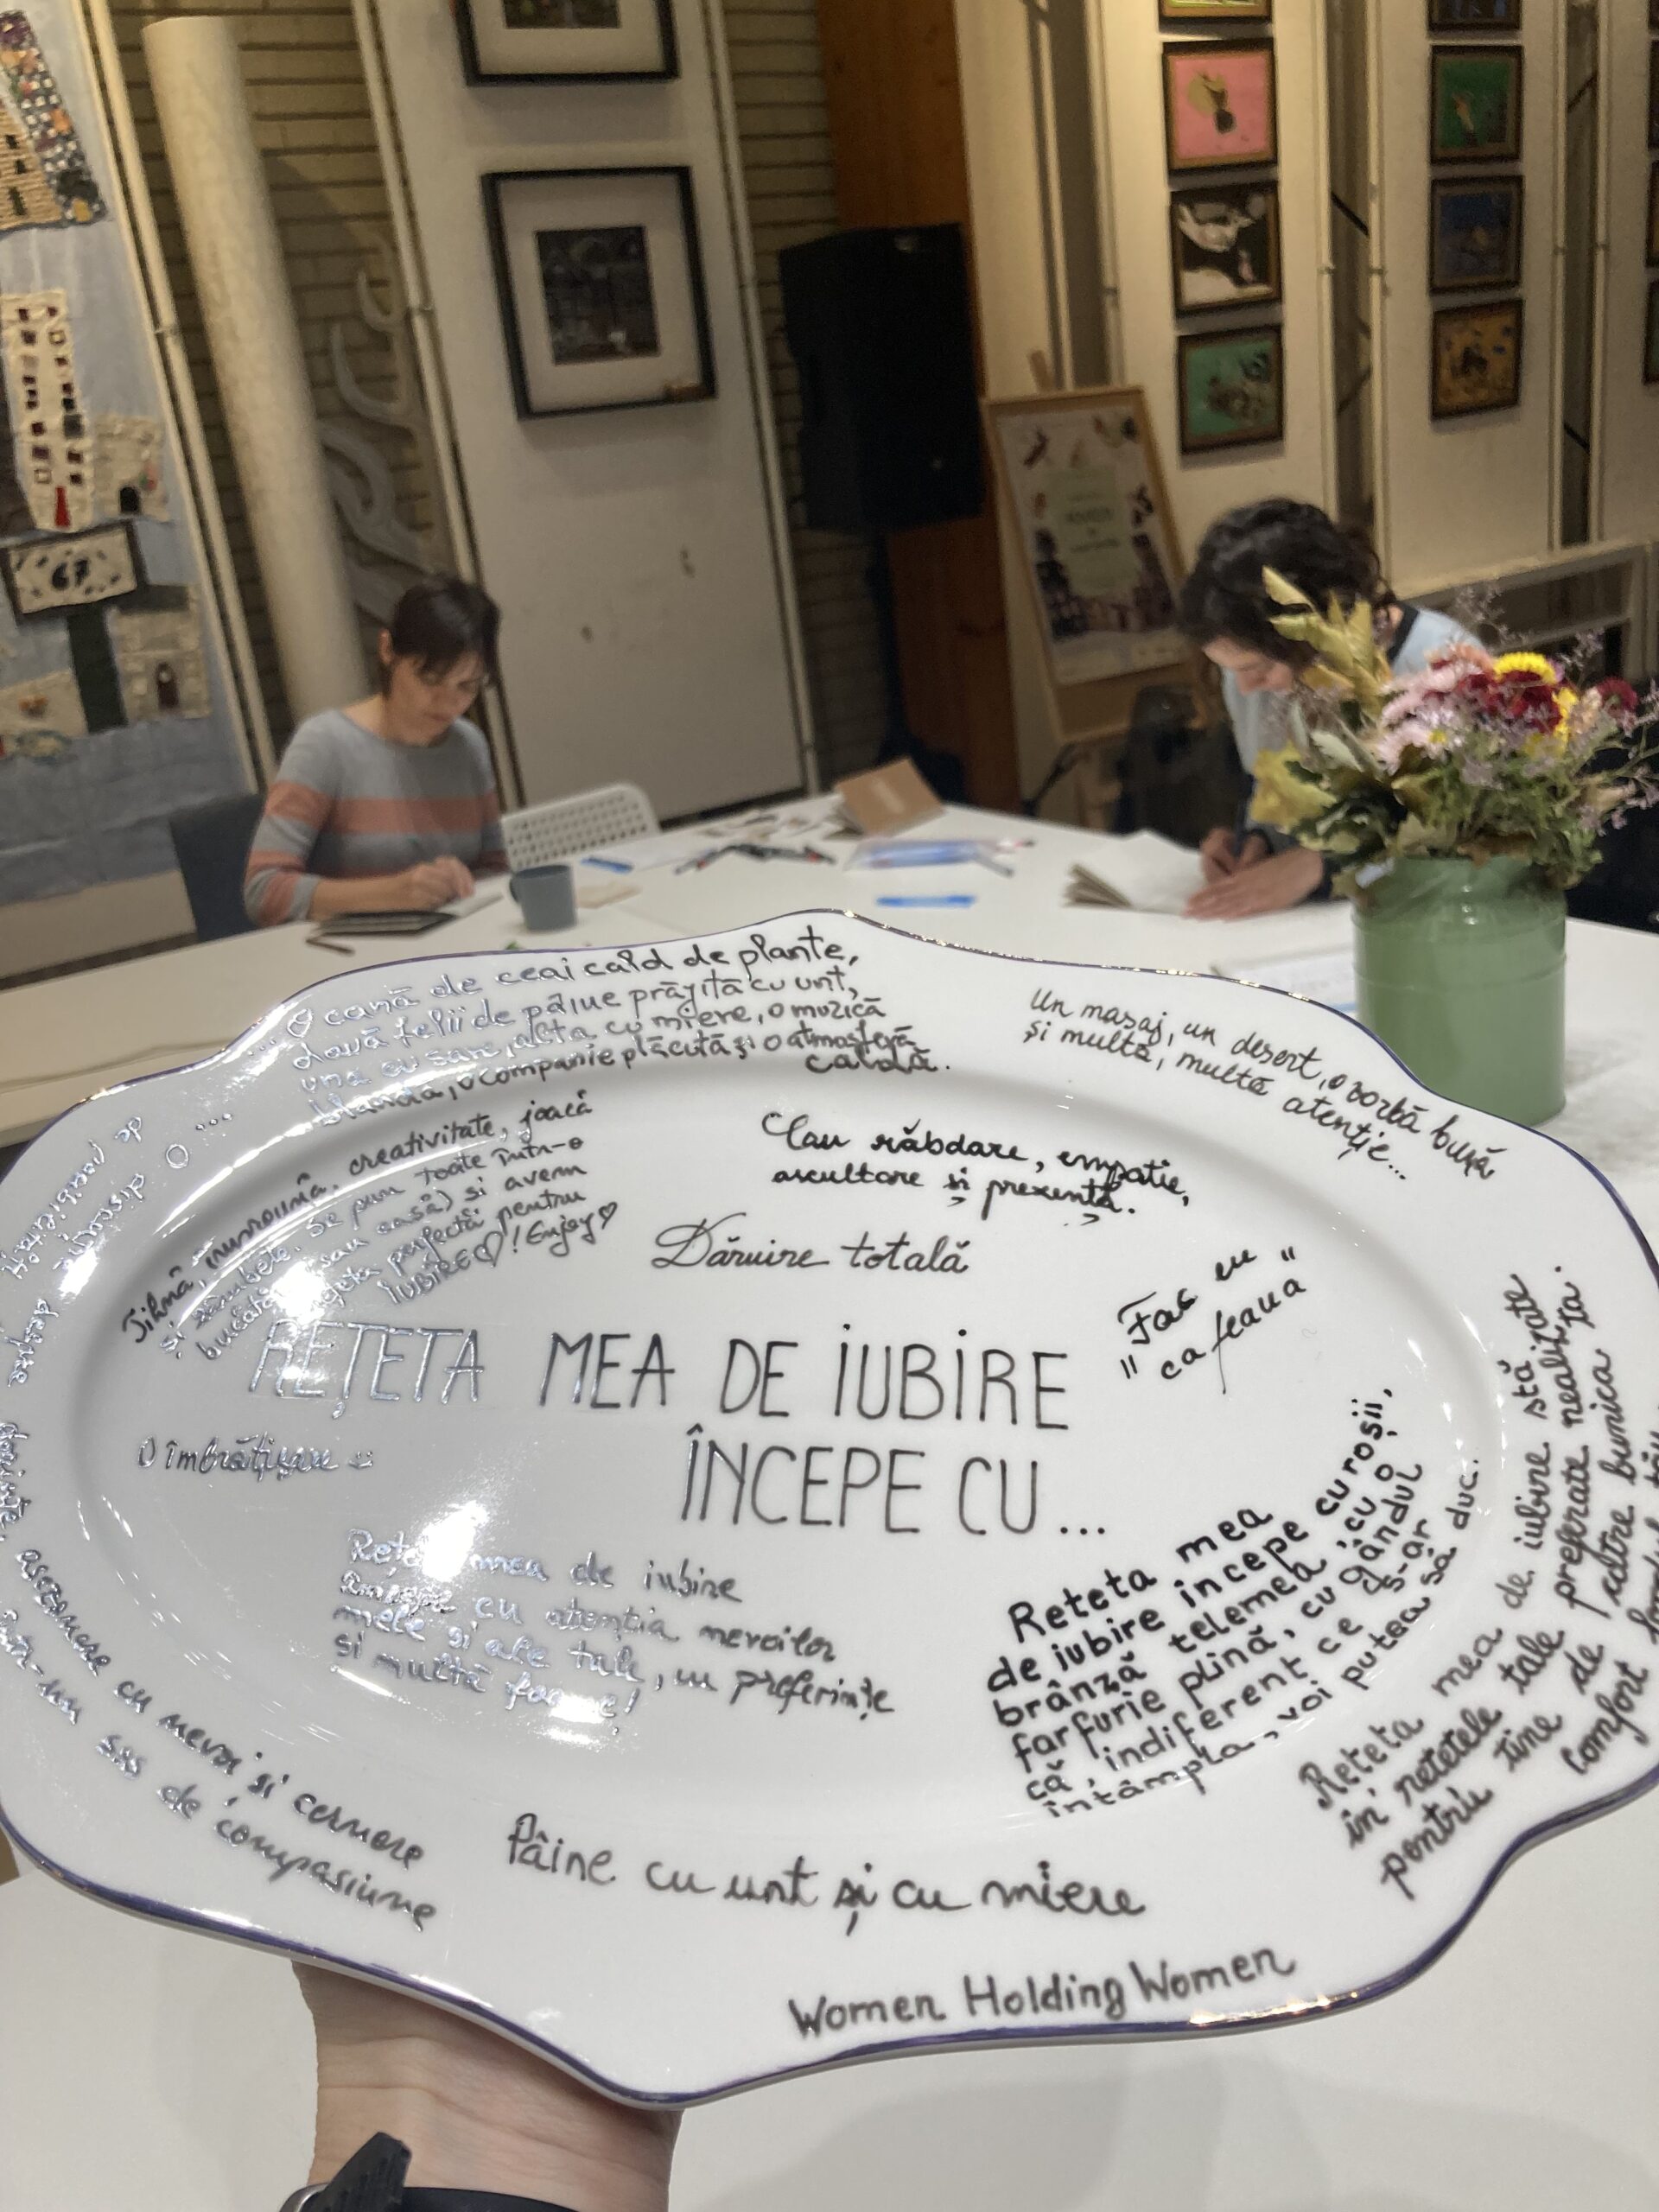 67
... O cană de ceai cald de plante,
două felii de pâine prăjită cu unt,
una cu sare, alta cu miere, o muzică
blandă, o companie plăcută și o atmosferă
caldă.
Un masaj, un desert, o vorbă bună
și multă, multă atenție...
Tihnă, împreună, creativitate, joacă
și zâmbete. Se pun toate într-o
bucătă sau casă) si avem
rețeta perfectă pentru
IUBIRE♡! Enjoy♡
răbdare, empatie,
ascultare și prezență.
Dăruire totală
"Fac eu
cafeaua"
REȚETA MEA DE IUBIRE
ÎNCEPE CU...
O îmbrățișare
Rețeta mea de iubire
cu atenția nevoilor
mele și ale tale, cu preferințe
si multă
Reteta mea
de iubire incepe cu roșii,
brânză telemea, cu o
farfurie plină, cu gândul
că, indiferent ce s-ar
întâmpla, voi putea să duc.
Reteta mea de iubire stă
in retetele tale preferate nealizate
pentru tine de către bunica ta.
Comfort
O discuție
despre
cu nevoi și cernere
într-un de compasiune
Pâine cu unt și cu miere
Women Holding Women